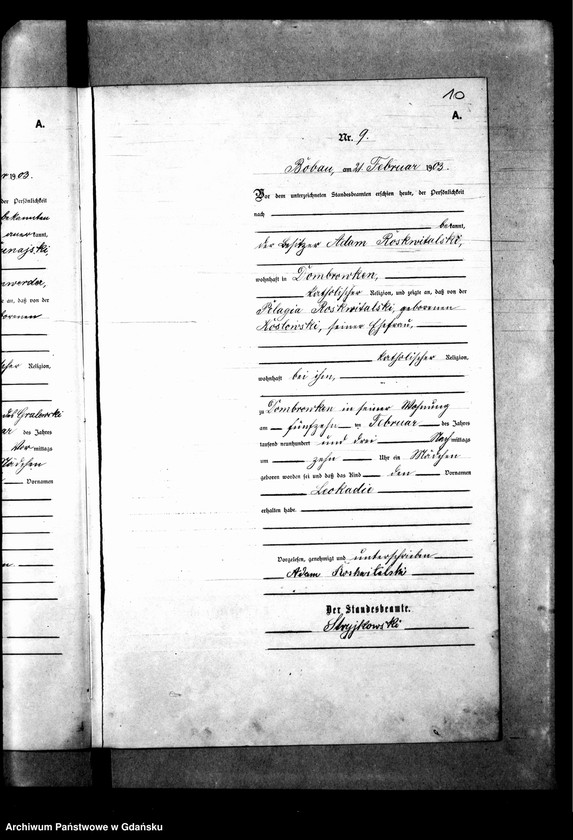 A.
r 1903.
der Persönlichkeit
bekannten
kannt,
werder,
te an, daß von der
borenen
scher Religion,
Gralewski
ar des Jahres
Vormittags
Mädchen
Vornamen
10
A.
Nr. 9.
Bobau, am 21 Februar 1903.
Vor dem unterzeichneten Standesbeamten erschien heute, der Persönlichkeit
nach
bekannt,
der Besitzer Adam Roskwitalski,
wohnhaft in Dombrowken,
katholischer Religion, und zeigte an, daß von der
Pelagia Roskwitalski, geborenen
Koslowski, seiner Ehefrau,
katholischer Religion,
wohnhaft bei ihm,
zu Dombrowken in seiner Wohnung
am fünfzehn ten Februar des Jahres
tausend neunhundert und drei Nachmittags
um zehn Uhr ein Mädchen
geboren worden sei und daß das Kind den Vornamen
Leokadie
erhalten habe.
Vorgelesen, genehmigt und unterschrieben
Adam Roskwitalski
Der Standesbeamte.
Stryjkowski
Archiwum Państwowe w Gdańsku